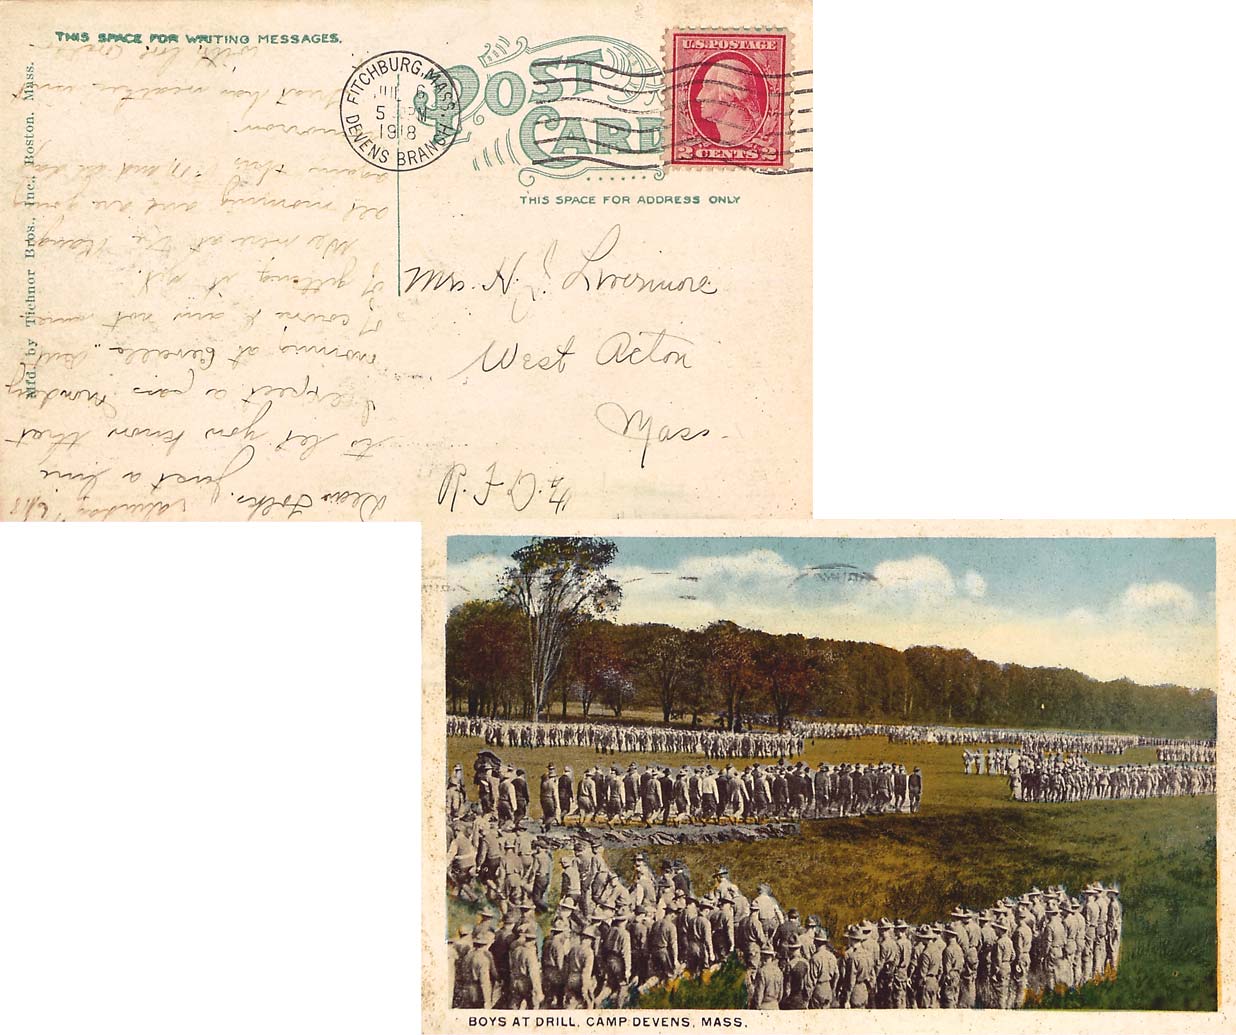 THIS SPACE FOR WRITING MESSAGES.
POST CARD
FITCHBURG, MASS.
JUL 6
5 PM
1918
DEVENS BRANCH
U.S. POSTAGE
2 CENTS 2
THIS SPACE FOR ADDRESS ONLY
Mfd. by Tichnor Bros., Inc., Boston, Mass.
Mrs. H. Livermore
West Acton
Mass.
R.F.D.
Dear Folks, Just a line
to let you know that
I expect a pass Sunday
morning at Reveille. But
of course I am not sure
of getting it yet.
We were at the Range
all morning and are going
again this P.M. and all day
tomorrow.
BOYS AT DRILL, CAMP DEVENS, MASS.